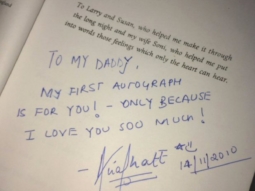 To Larry and Susan, who helped me make it through
the long night and my wife Soni, who helped me put
into words those feelings which only the heart can hear.
TO MY DADDY,
MY FIRST AUTOGRAPH
IS FOR YOU! - ONLY BECAUSE
I LOVE YOU SOO MUCH!
14/11/2010